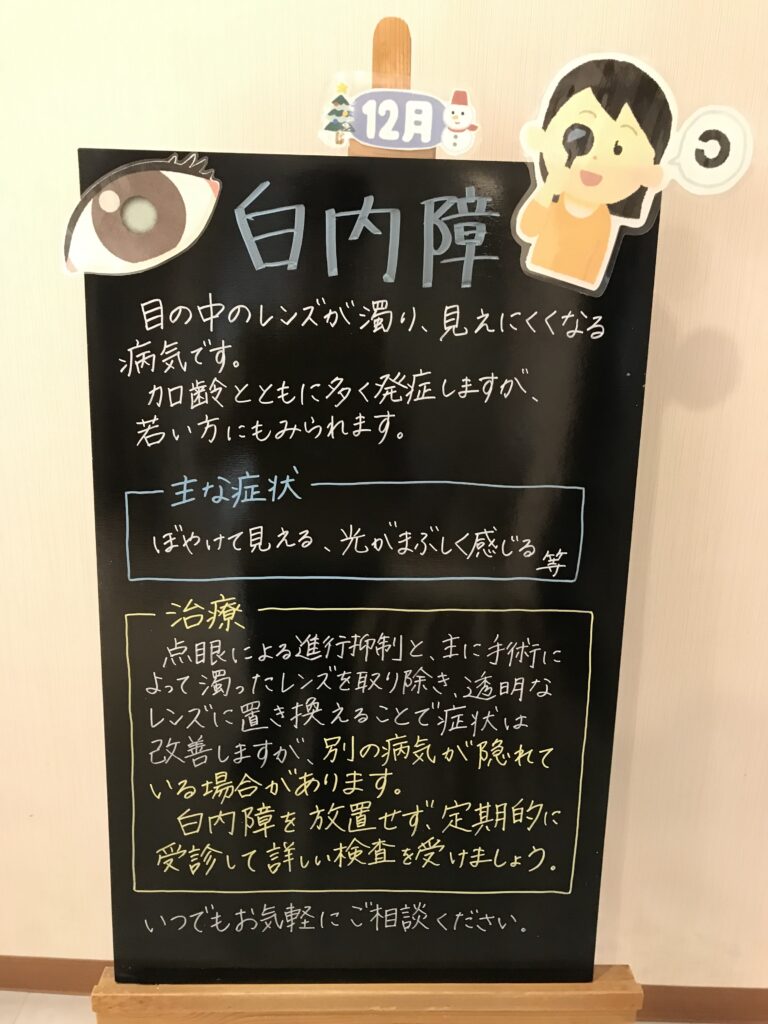 12月
白内障
目の中のレンズが濁り、見えにくくなる
病気です。
加齢とともに多く発症しますが、
若い方にもみられます。
主な症状
ぼやけて見える、光がまぶしく感じる 等
治療
点眼による進行抑制と、主に手術に
よって濁ったレンズを取り除き、透明な
レンズに置き換えることで症状は
改善しますが、別の病気が隠れて
いる場合があります。
白内障を放置せず、定期的に
受診して詳しい検査を受けましょう。
いつでもお気軽にご相談ください。